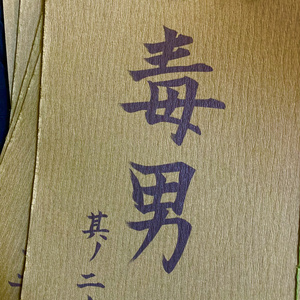 毒男
其ノ二